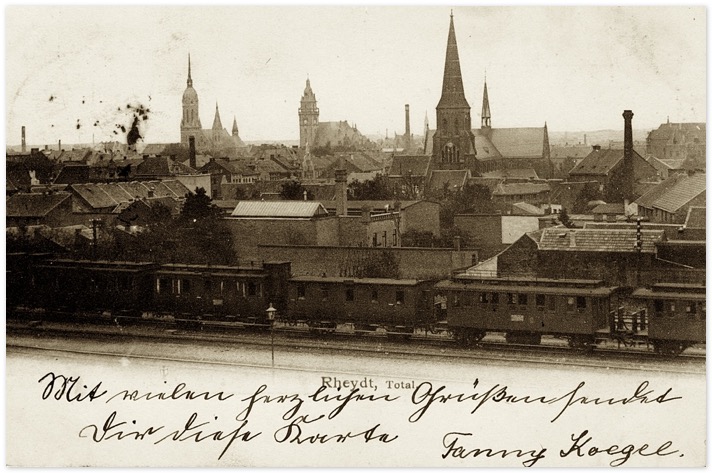 Rheydt, Total
Mit vielen herzlichen Grüßen sendet
Dir diese Karte Fanny Koegel.